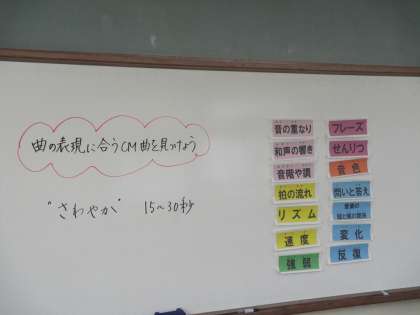 曲の表現に合うCM曲を見つけよう
"さわやか" 15〜30秒
音の重なり
和声の響き
音階や調
拍の流れ
リズム
速度
強弱
フレーズ
せんりつ
音色
問いと答え
変化
反復